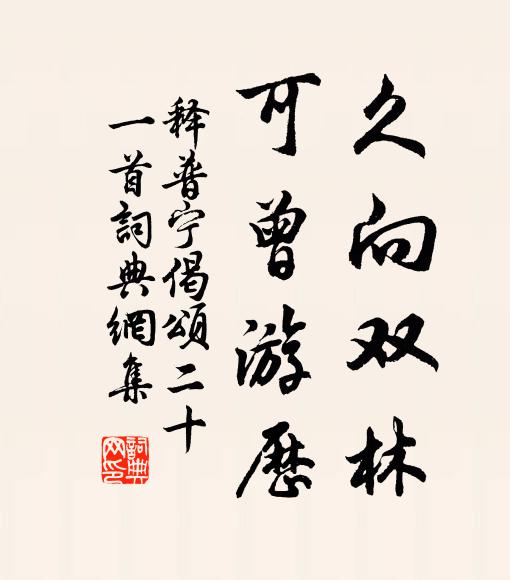 久向双林
可曾游历
释普宁偈颂二十
一首詞典網集
詞典
网印